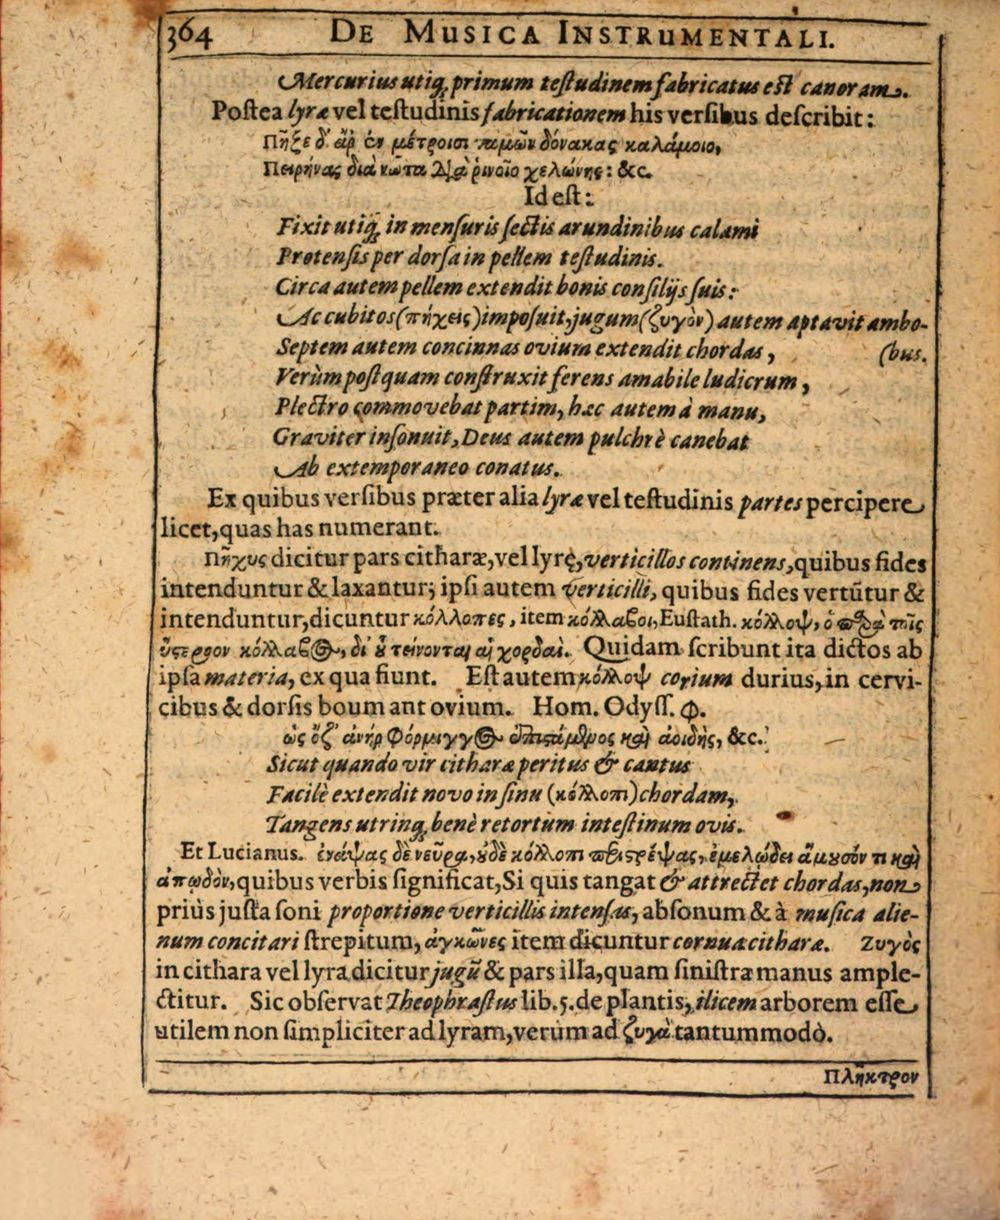 364 DE MUSICA INSTRUMENTALI.
Mercurius utiq; primum testudinem fabricatus est canoram.
Postea lyræ vel testudinis fabricationem his versibus describit:
Πῆξε δ' ἄρ ἐν μέτροισι ταμὼν δόνακας καλάμοιο,
Πειρήνας διὰ νῶτα διὰ ῥινοῖο χελώνης: &c.
Id est:
Fixit utiq; in mensuris sectis arundinibus calami
Protensis per dorsa in pellem testudinis.
Circa autem pellem extendit bonis consilijs suis:
Ac cubitos (πήχεις) imposuit, jugum (ζυγὸν) autem aptavit ambo-
Septem autem concinnas ovium extendit chordas, (bus.
Verùm postquam construxit ferens amabile ludicrum,
Plectro commovebat partim, hæc autem à manu,
Graviter insonuit, Deus autem pulchrè canebat
Ab extemporaneo conatus.
Ex quibus versibus præter alia lyræ vel testudinis partes percipere
licet, quas has numerant.
Πῆχυς dicitur pars citharæ, vel lyrę, verticillos continens, quibus fides
intenduntur & laxantur; ipsi autem verticilli, quibus fides vertũtur &
intenduntur, dicuntur κόλλοπες, item κόλλαβοι, Eustath. κόλλοψ, ὁ παρὰ τοῖς
ὕστερον κόλλαβος, δι' οὗ τείνονται αἱ χορδαί. Quidam scribunt ita dictos ab
ipsa materia, ex qua fiunt. Est autem κόλλοψ corium durius, in cervi-
cibus & dorsis boum ant ovium. Hom. Odyss. φ.
ὡς ὅτ' ἀνὴρ Φόρμιγγος ἐπιστάμενος καὶ ἀοιδῆς, &c.
Sicut quando vir citharæ peritus & cantus
Facilè extendit novo in sinu (κόλλοπι) chordam,
Tangens utrinq; benè retortum intestinum ovis.
Et Lucianus. ἐνάψας δὲ νεῦρα, οὐδὲ κόλλοπι περιστρέψας, ἐμελώδει ἄμουσόν τι καὶ
ἀπῳδὸν, quibus verbis significat, Si quis tangat & attrectet chordas, non
priùs justa soni proportione verticillis intensas, absonum & à musica alie-
num concitari strepitum, ἀγκῶνες item dicuntur cornua citharæ. Ζυγὸς
in cithara vel lyra dicitur jugũ & pars illa, quam sinistræ manus ample-
ctitur. Sic observat Theophrastus lib. 5. de plantis, ilicem arborem esse
utilem non simpliciter ad lyram, verùm ad ζυγὰ tantummodò.
Πλῆκτρον